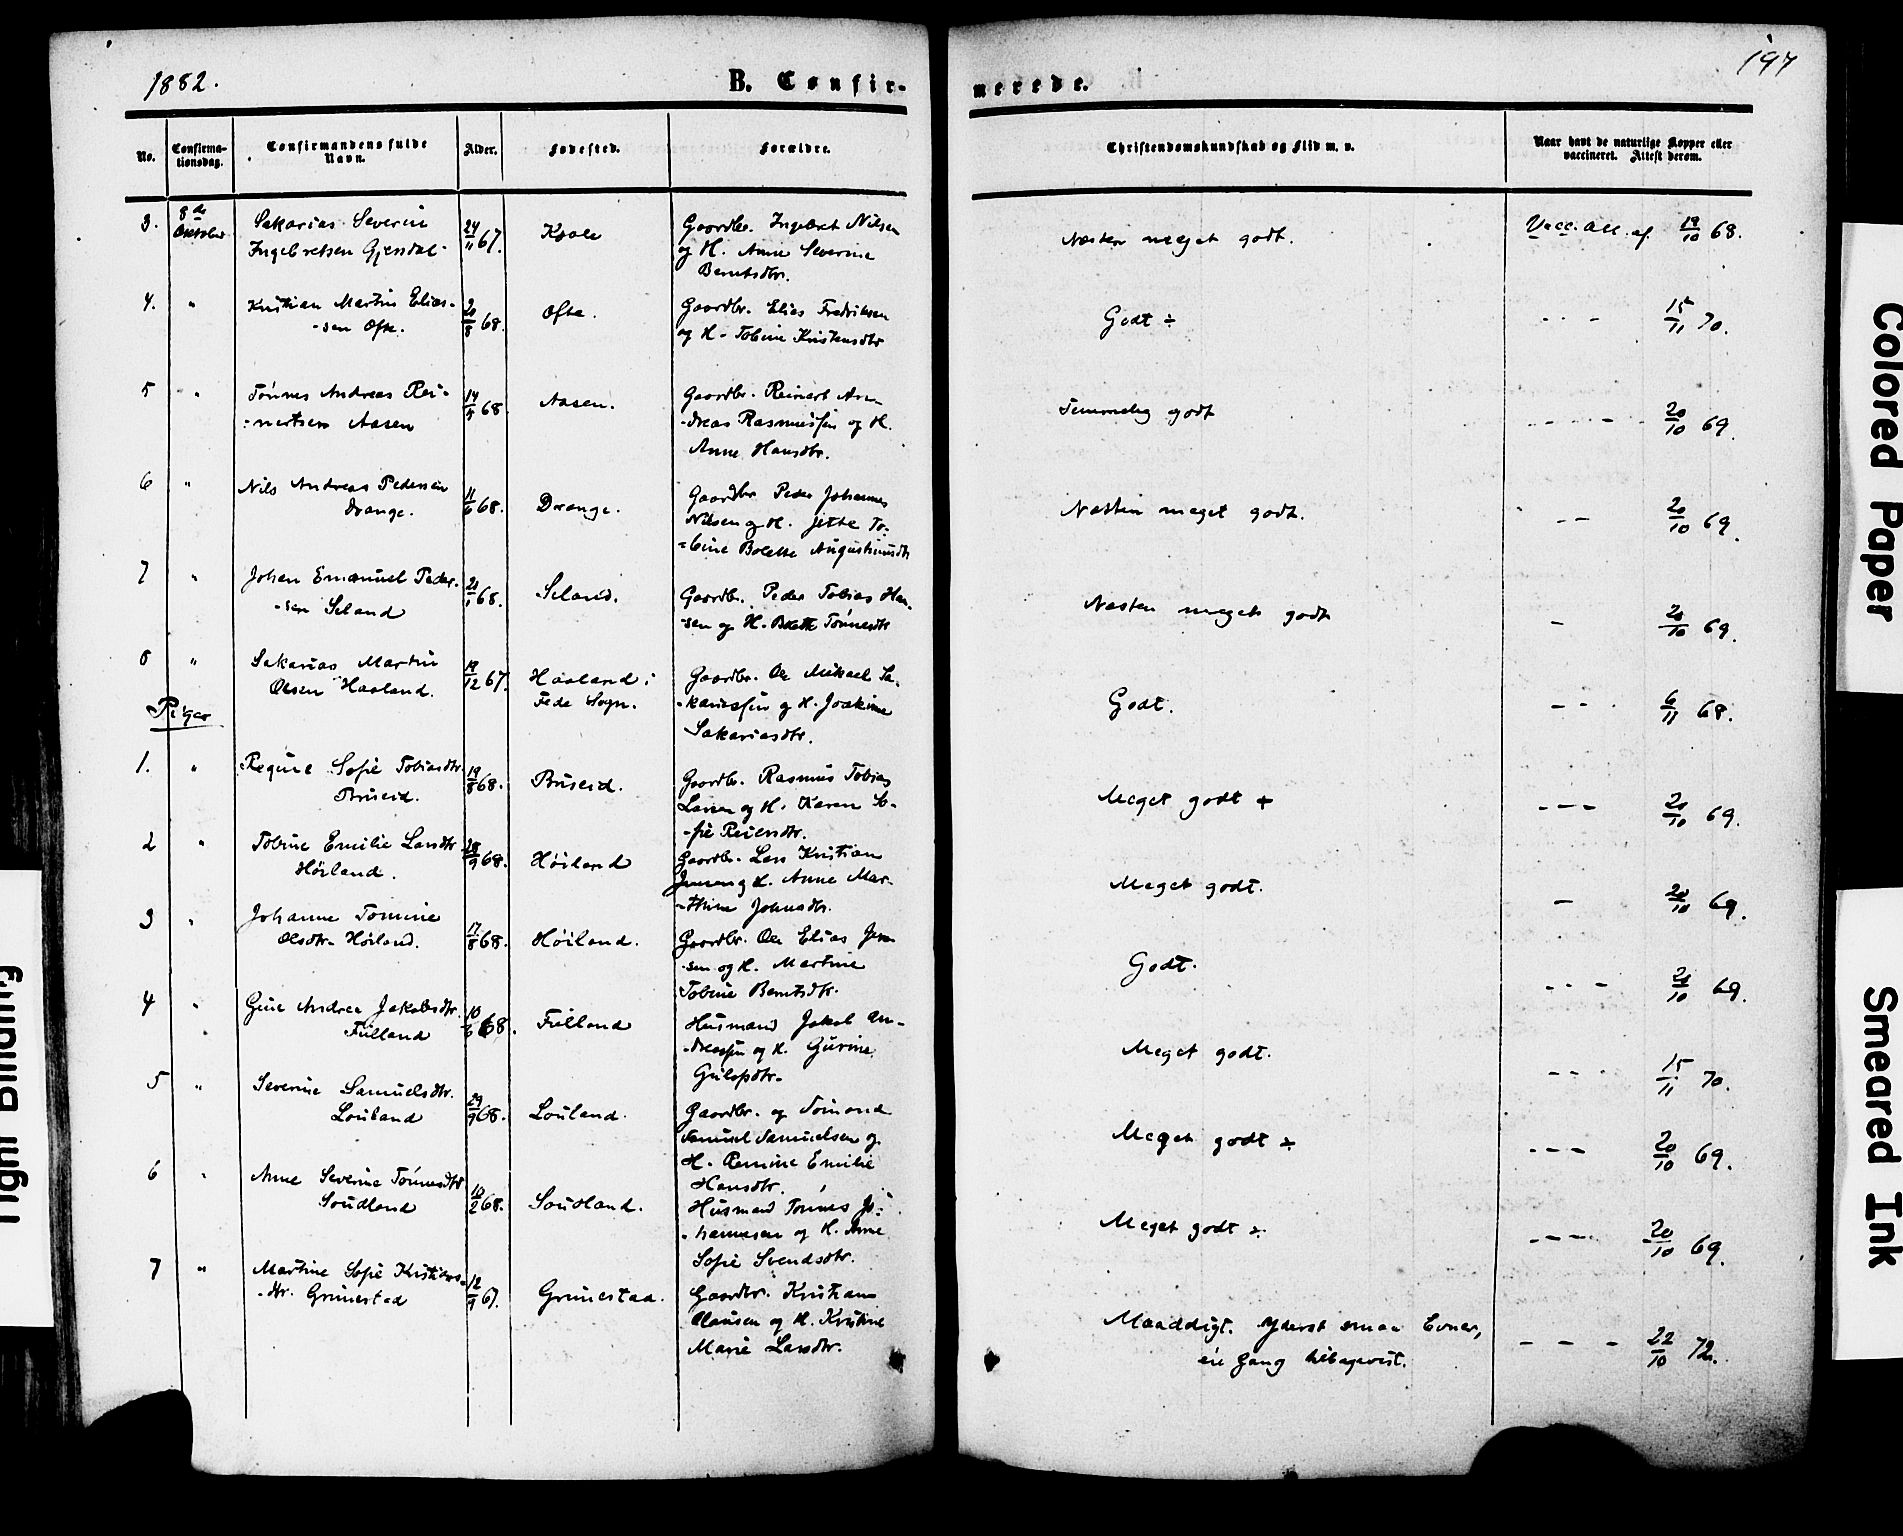 1882.
B. Confir-
merede.
197
No.
Confirma-
tionsdag.
Confirmandens fulde
Navn.
Alder.
Fødested.
Forældre.
Christendomskundskab og Flid m. v.
Naar havt de naturlige Kopper eller
vaccineret. Attest derom.
3. 8de Oktober
Sakarias Severin
Ingebretsen Gjendal
24/11 67.
Gaardbr. Ingebret Nilsen
og H. Anne Severine
Berntsdtr.
Næsten meget godt.
Vacc. att. af 19/10 68.
4. "
Kristian Martin Elias-
-sen Ofte.
20/8 68.
Ofte.
Gaardbr. Elias Fredriksen
og H. Tobine Kristensdtr
Godt ÷
- - - 15/11 70.
5 "
Tønnes Andreas Rei-
-nertsen Aasen
14/5 68
Aasen.
Gaardbr. Reinert An-
-dreas Rasmussen og H.
Anne Hansdtr.
Temmelig godt
- - - 20/10 69.
6 "
Nils Andreas Pedersen
Drange.
11/6 68.
Drange.
Gaardbr. Peder Johannes
Nilsen og H. Jette To-
-bine Bolette Augustinusdtr
Næsten meget godt.
- - 20/10 69.
7 "
Johan Emanuel Peder-
-sen Seland
20/1 68.
Seland.
Gaardbr. Peder Tobias Han-
-sen og H. Tønnesdtr
Næsten meget godt
- 20/10 69.
8 "
Sakarias Martin
Olsen Haaland.
19/12 67.
Haaland i
Feda Sogn.
Gaardbr. Ole Mikael Sa-
-kariassen og H. Joakime
Sakariasdtr.
Godt.
- - - 6/11 68.
Piger
1. "
Regine Sofie Tobiasdtr
Bruseid.
19/8 68.
Bruseid.
Gaardbr. Rasmus Tobias
Larsen og H. Karen So-
-fie Reiersdtr.
Meget godt +
- - - 20/10 69.
2 "
Tobine Emilie Larsdtr
Høiland.
28/9 68.
Høiland
Gaardbr. Lars Kristian
Jensen og H. Anne Mar-
-thine Johnsdtr.
Meget godt.
- 20/10 69.
3 "
Johanne Tomine
Olsdtr. Høiland.
17/8 68.
Høiland.
Gaardbr. Ole Elias Jen-
-sen og H. Martine
Tobine Berntsdtr.
Godt.
- - - 20/10 69.
4 "
Gine Andrea Jakobsdtr.
Fulland
10/6 68.
Fulland
Husmand Jakob An-
-dreassen og H. Gurine
Meget godt.
- - - 15/11 70.
5 "
Severine Samuelsdtr.
Louland
29/9 68.
Louland.
Gaardbr. og Sømand
Samuel Samuelsen og
H. Remine Emilie
Hansdtr.
Meget godt ÷
- - - 20/10 69.
6 "
Anne Severine Tønnesdtr
Soudland
10/2 68.
Soudland.
Husmand Tønnes Jo-
-hannesen og H. Anne
Sofie Svendsdtr.
Meget godt ÷
- - - 20/10 69.
7 "
Martine Sofie Kristians-
-dtr. Grunestad
12/9 67.
Grunestad.
Gaardbr. Kristian
Clausen og H. Kristine
Marie Larsdtr.
Maadeligt. Yderst smaa Evner,
een Gang tilbagevist.
- - - 22/10 72.
Tight Binding
Colored Paper
Smeared Ink